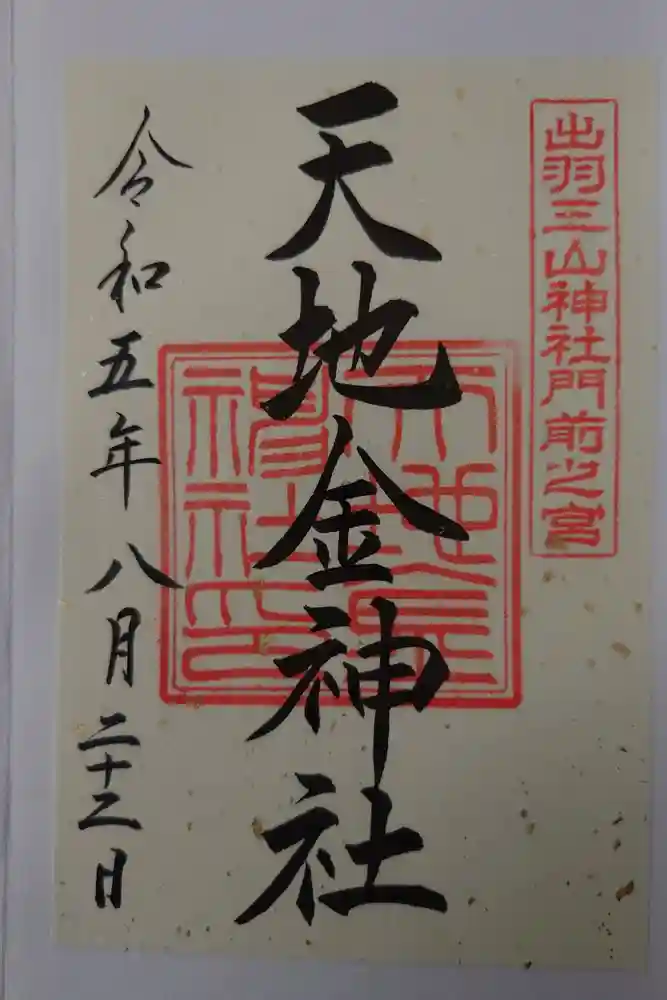 出羽三山神社門前之宮
天地金神社
令和五年八月二十二日